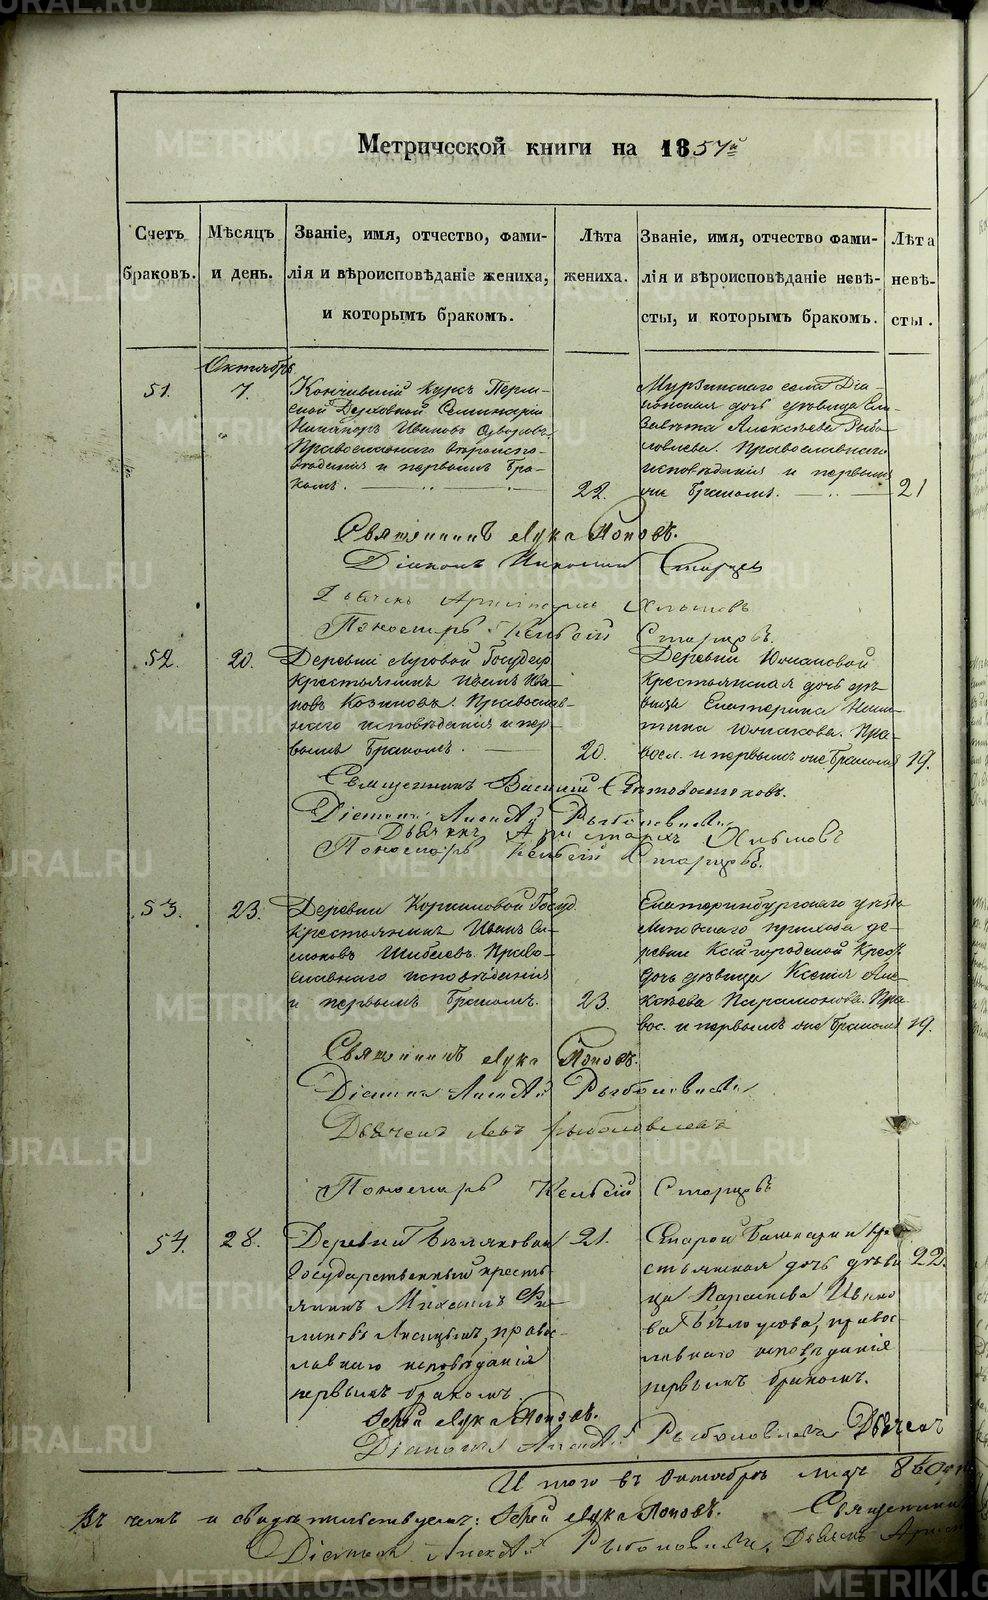 METRIKI.GASO-URAL.RU
Метрической книги на 1857й
Счетъ браковъ.
Мѣсяцъ и день.
Званіе, имя, отчество, фами-
лія и вѣроисповѣданіе жениха,
и которымъ бракомъ.
Лѣта жениха.
Званіе, имя, отчество фами-
лія и вѣроисповѣданіе невѣ-
сты, и которымъ бракомъ.
Лѣта невѣ-
сты.
Октябрь
51.
7.
Кончившій курсъ Перм-
ской Духовной Семинаріи
Никаноръ Ивановъ
Православнаго вѣроиспо-
вѣданія и первымъ бра-
комъ.
22.
Мурзинскаго села Діа-
конская дочь дѣвица Ели-
завета Алексѣева Рыбо-
ловлева. Православнаго
исповѣданія и первымъ
же бракомъ.
21
Священникъ Лука Поповъ.
Діаконъ Николай Старцев
Дьячекъ Аристархъ Хлыновъ
Пономарь Евсевій Старцовъ.
52.
20.
Деревни Луговой Государ
крестьянинъ Иванъ Ива-
новъ Козиновъ. Православ-
наго исповѣданія и пер-
вымъ бракомъ.
20.
Деревни Южаковой
Крестьянская дочь дѣ-
вица Екатерина Ники-
тина Южакова. Пра-
восл. и первымъ же бракомъ
19.
Священникъ Василій
Діаконъ Алексѣй Рыболовлевъ
Дьячекъ Аристархъ Хлыновъ
Пономарь Евсевій Старцовъ.
53.
23.
Деревни Корниловой Госуд.
крестьянинъ Иванъ Си-
моновъ Шибаевъ. Право-
славнаго исповѣданія
и первымъ бракомъ.
23.
Екатеринбургскаго уѣзда
прихода де-
ревни Кайгородской Крест.
дочь дѣвица Ксенія Але-
ксѣева Парамонова. Пра-
вос. и первымъ же бракомъ
19.
Священникъ Лука Поповъ.
Діаконъ Алексѣй Рыболовлевъ
Дьячекъ Левъ Рыболовлевъ
Пономарь Евсевій Старцовъ
54.
28.
Деревни Бѣляковой
Государственный кресть-
янинъ Михаилъ Фи-
липовъ Лисицынъ, право-
славнаго исповѣданія
первымъ бракомъ.
21.
Старой Башкарки кре-
стьянская дочь дѣви-
ца Параскева Ивано-
ва Бѣлоусова, правос-
лавнаго исповѣданія
первымъ бракомъ.
22.
Іерей Лука Поповъ.
Діаконъ Алексѣй Рыболовлевъ Дьячекъ
Итого въ Октябрѣ мцѣ 8
Въ чемъ и свидѣтельствуемъ: Іерей Лука Поповъ. Священникъ
Діаконъ Алексѣй Рыболовлевъ, Дьячекъ